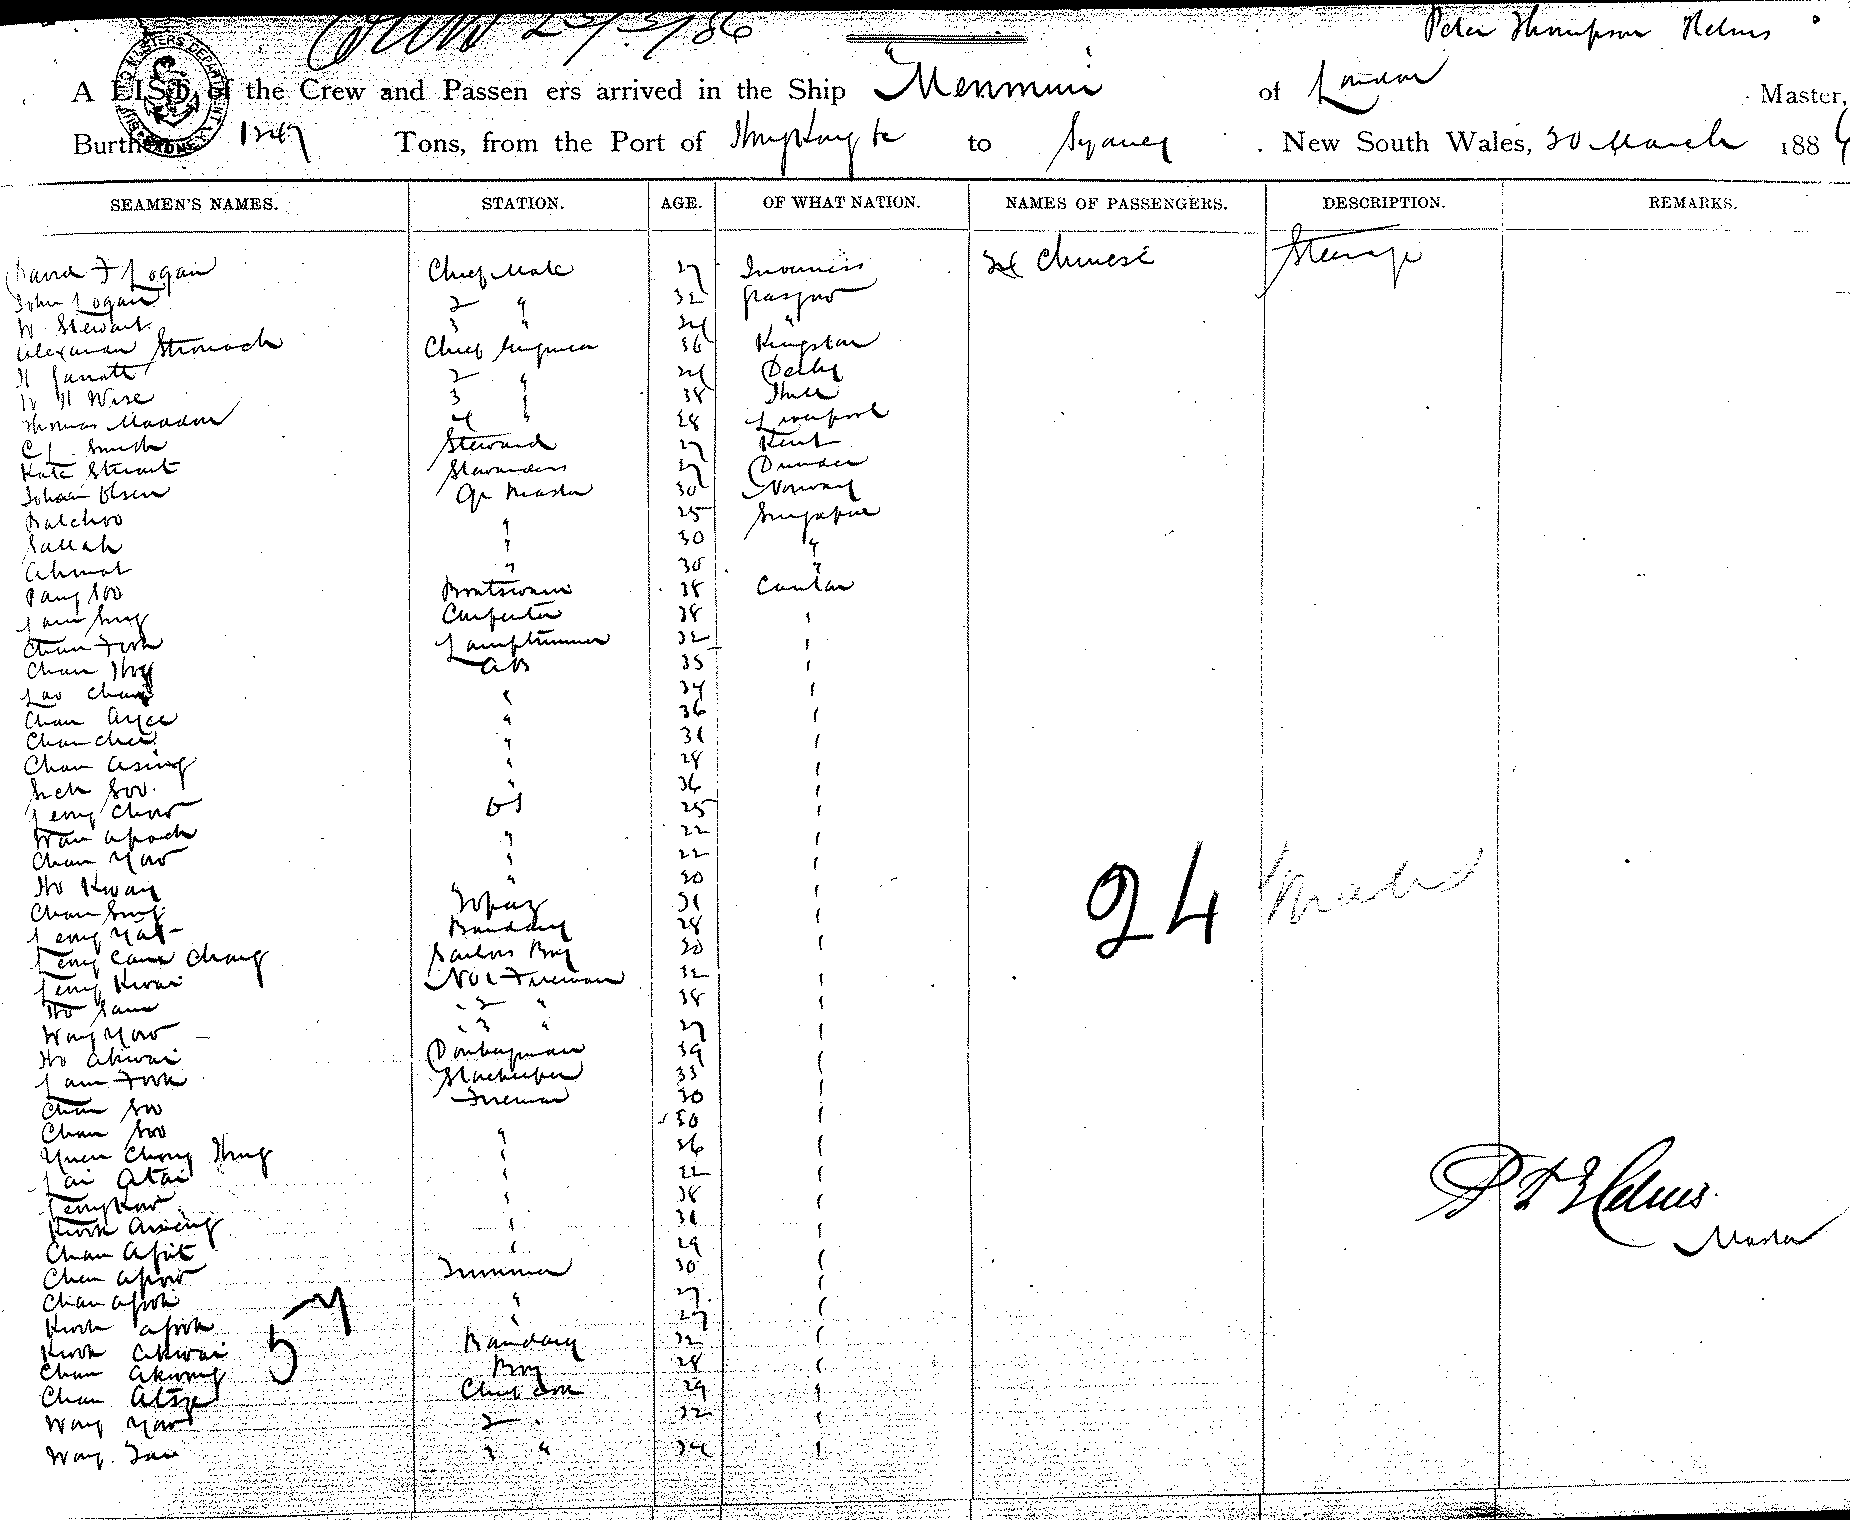 Peter Thompson Helms
A LIST of the Crew and Passen ers arrived in the Ship "Menmuir" of London Master,
Burthen 1247 Tons, from the Port of Hongkong to Sydney New South Wales, 30 March 1886
SEAMEN'S NAMES. STATION. AGE. OF WHAT NATION. NAMES OF PASSENGERS. DESCRIPTION. REMARKS.
David F Logan Chief Mate 27 Inverness 24 Chinese Steerage
John Logan 2 " 32 Glasgow
W Stewart 3 " 24 "
Alexander Stronach Chief Engineer 36 Kingston
H Garratt 2 " 24 Derby
W H Wise 3 " 38 Hull
Thomas Maddow 4 " 28 Liverpool
C L Smith Steward 27 Kent
Kate Stewart Stewardess 27 Dundee
Johan Olsen Qr Master 30 Norway
Balchoo " 25 Singapore
Sallah " 30 "
Ahmat " 30 "
Pang Soo Boatswain 38 Canton
Lam Sing Carpenter 38 "
Chan Fook Lamptrimmer 32 "
Chan Hoy AB 35 "
Lao Chang " 34 "
Chan Ayee " 36 "
Chan Chee " 31 "
Chan Asing " 28 "
Sich Soo " 36 "
Leong Chow OS 25 "
Wan Apoch " 22 "
Chan Yow " 22 "
Ho Kwang " 30 "
Chan Sing Topaz 31 "
Leong Yat Bandary 28 "
Leong Cam Chong Sailors Boy 30 "
Leong Kwai No 1 Fireman 32 "
Ho Sam " 2 " 38 "
Wong Yow " 3 " 27 "
Ho Akwai Donkeyman 39 "
Lam Fook Storekeeper 33 "
Chan Soo Fireman 30 "
Chan Soo " 30 "
Yuen Chong Hong " 36 "
Lai Atai " 22 "
Leong Kow " 38 "
Kwok Ameng " 31 "
Chan Apit " 29 "
Chan Apow Trimmer 30 "
Chan Apok " 27 "
Kwok Apok " 27 "
Kwok Akwai Bandary 32 "
Chan Akwong Boy 28 "
Chan Atsze Chief Cook 29 "
Wong Yow 2 " 32 "
Wong Tai 3 " 34 "
24 Male
57
P T Helms
Master